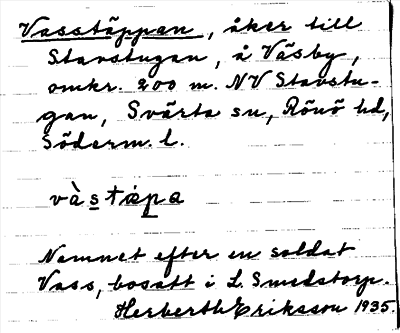 Vasstäppan, åker till
Stavstugan, å Väsby,
omkr. 200 m. NV Stavstu-
gan, Svärta sn, Rönö hd,
Söderm. l.
vàstæpa
Namnet efter en soldat
Vass, bosatt i L. Smedstorp.
Herberth Eriksson 1935.